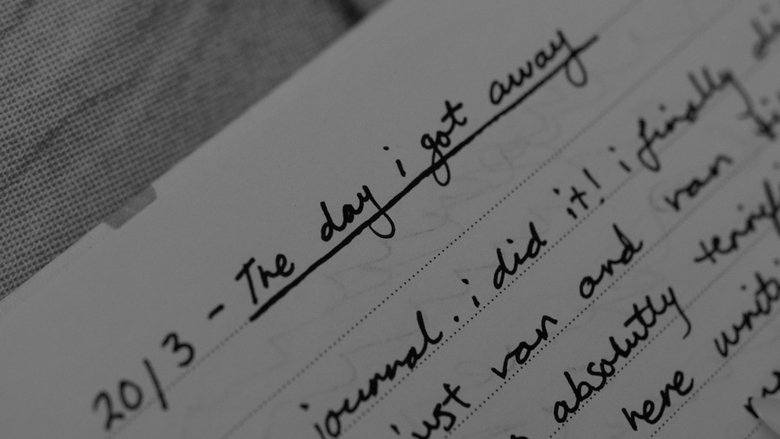 20/3 - The day i got away
journal. i did it! i finally
just ran and ran
absolutly
here